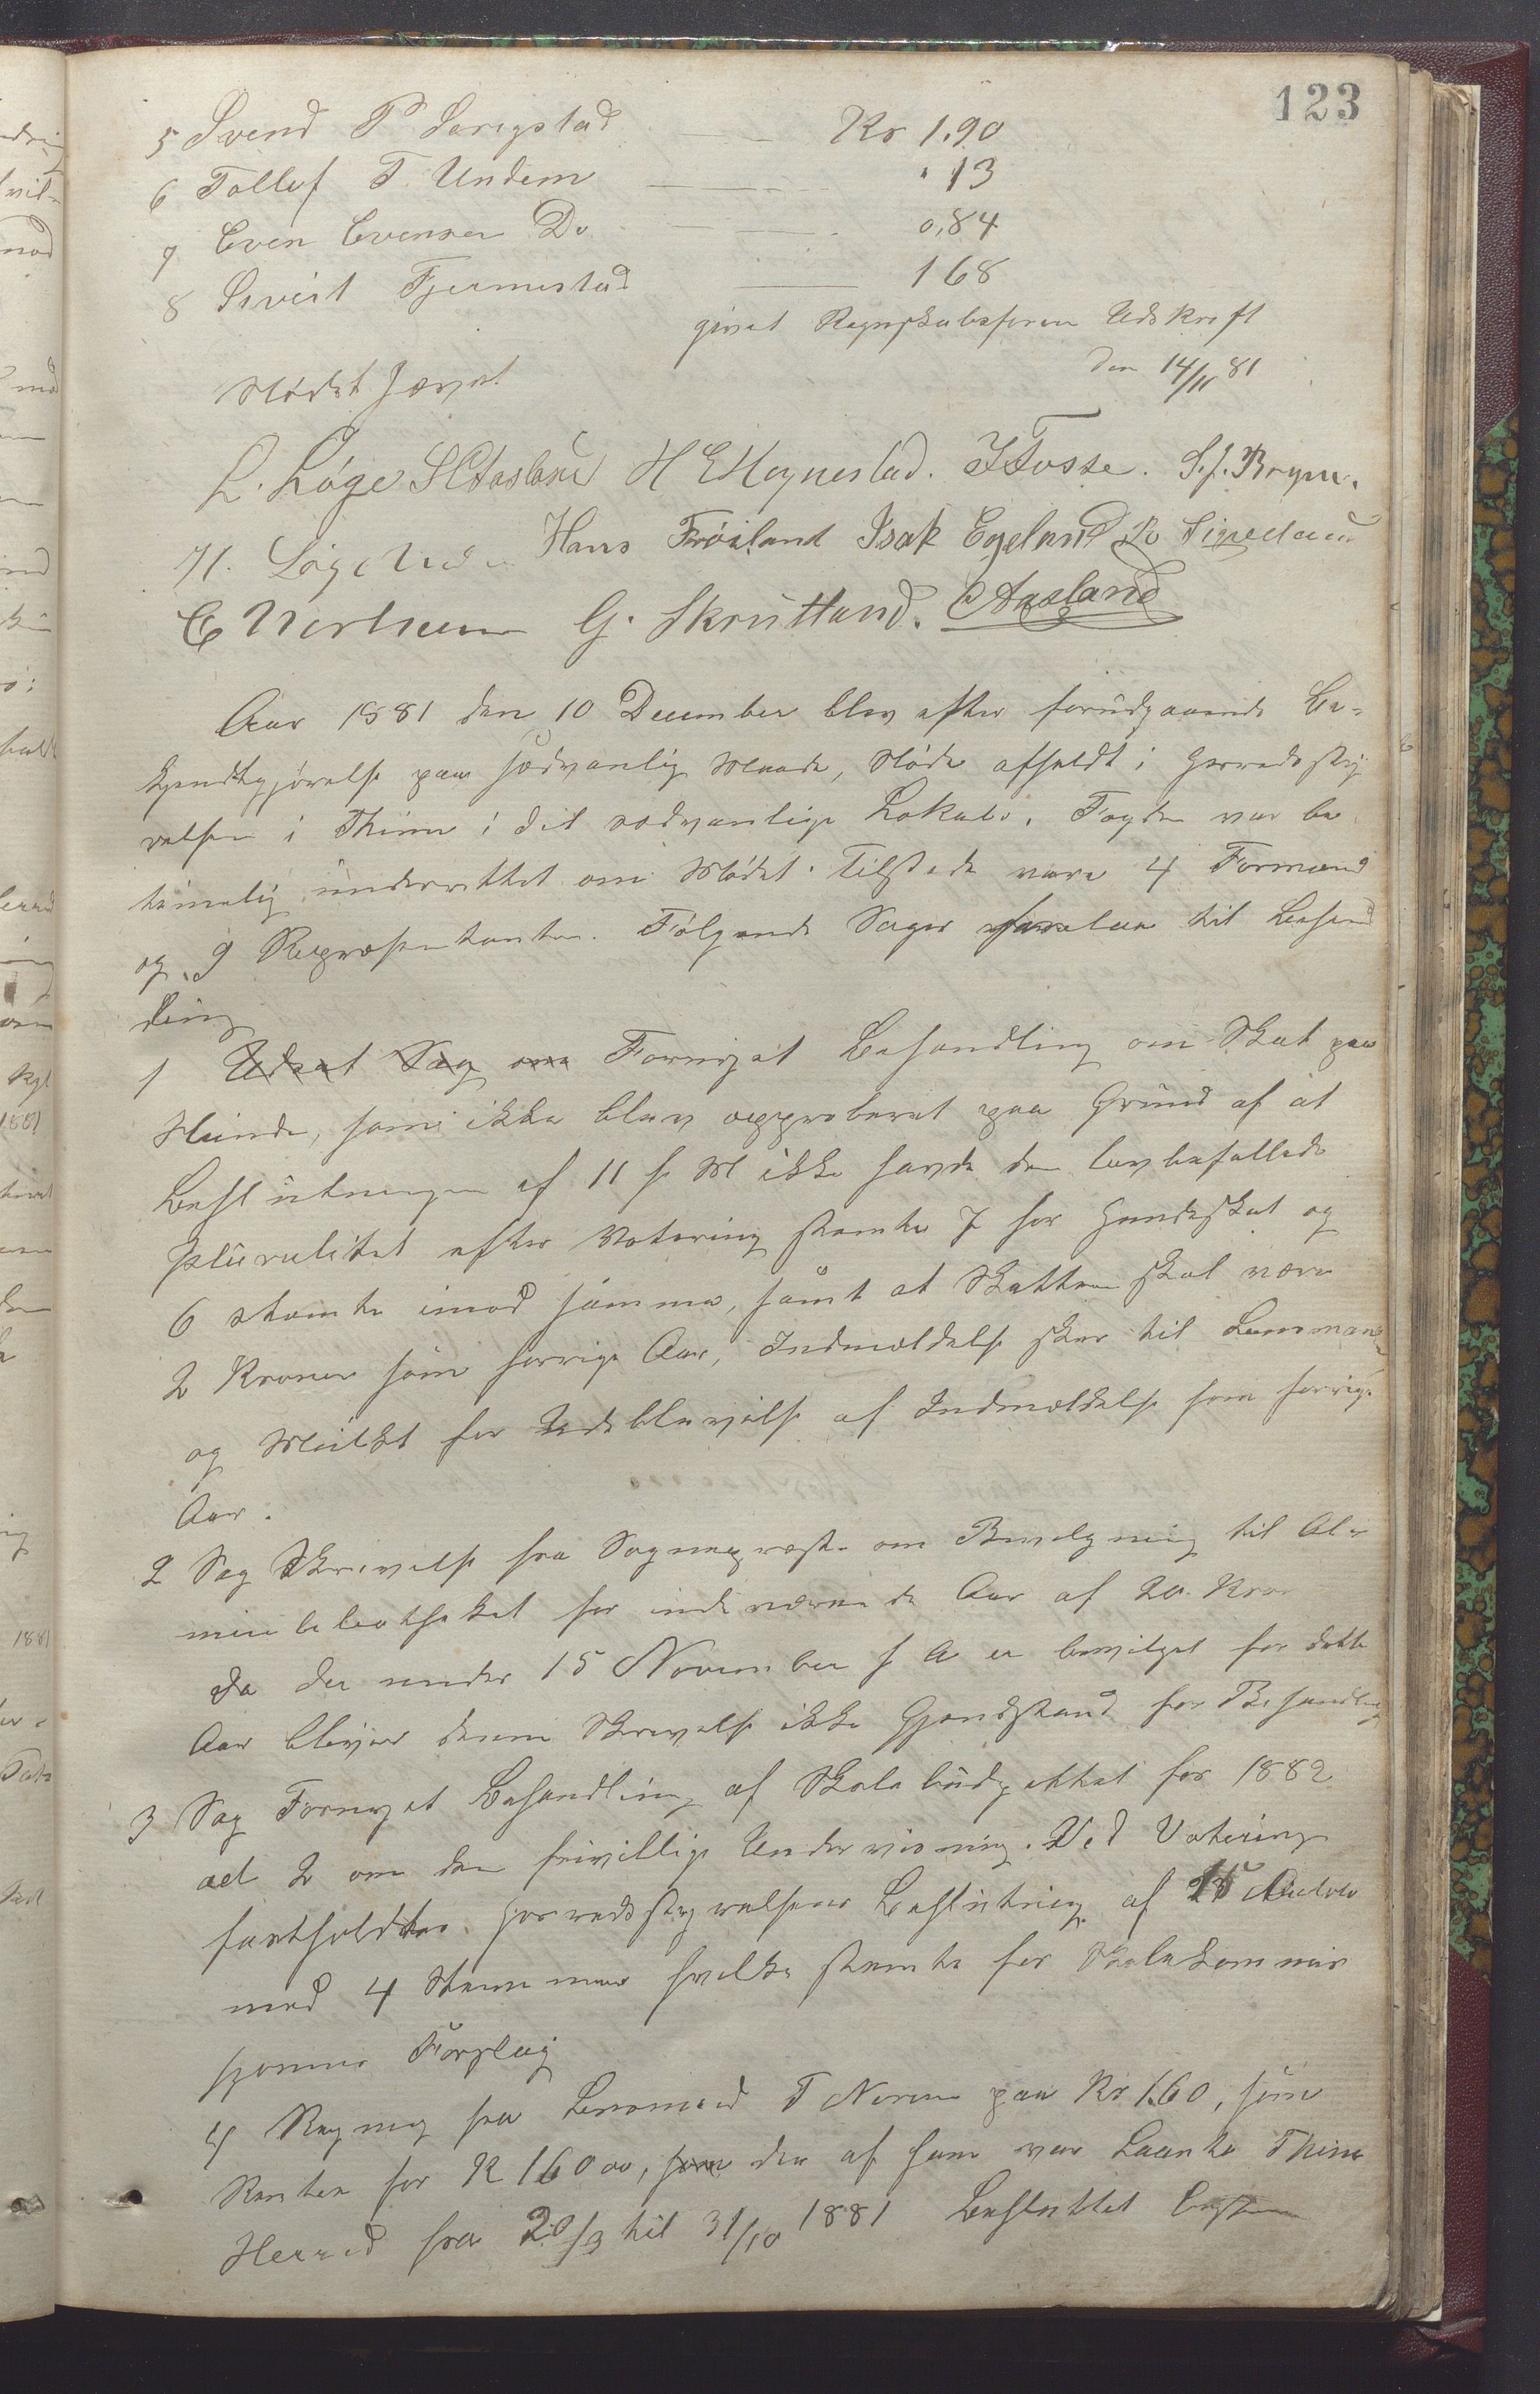 123
5 Svend P Serigstad Kr 1.90
6 Tollef T. Undem " 13
7 Even Evensen Do 0,84
8 Sivert Fjermestad 168
givet Regnskabsføreren Udskrift
den 14/11 81
Mødet hævet
L. Løge S Aasland H E Høynestad. I Fosse. S. J. Bryne.
H. Løge Hans Frøiland Isak Egeland
E Norheim G. Skrutland. Aasland
Aar 1881 den 10 December blev efter forudgaaende Be-
kjendtgjørelse paa sædvanlig Maade, Møde afholdt i Herredssty
relsen i Thime i det sædvanlige Lokale. Fogden var be
timelig underrettet om Mødet. Tilstede vare 4 Formænd
og 9 Repræsentanter. Følgende Sager forelaa til Behand
ling
1 Udsat Sag om Fornyet Behandling om Skat paa
Hunde, som ikke blev approberet paa Grund af at
Beslutningen af 11 f M ikke havde den lovbefallede
Pluralitet efter Votering stemte 7 for Hundeskat og
6 stemte imod samme, samt at Skatten skal være
2 Kroner som forrige Aar, Indmældelse sker til Lensmand
og Mulkt for Udeblivelse af Indmeldelse som forrige
Aar.
2 Sag Skrivelse fra Sognepræsten om Bevilgning til Al-
muebibliotheket for indeværende Aar af 20 Kroner
da der under 15 November f A er bevilget for dette
Aar bliver denne Skrivelse ikke Gjenstand for Behandling
3 Sag Fornyet Behandling af Skolebudgettet for 1882
ad 2 om den frivillige Undervisning. Ved Votering
fastholdtes Herredsstyrelsens Beslutning af 15 October
mod 4 Stemmer hvilke stemte for Skolekommis
sjonens Forslag
4 Regning fra Lensmand T Neren paa Kr 1.60, som
Renter for K 160 00, som den af ham var Laante Thime
Herred fra 20/9 til 31/10 1881 Besluttet